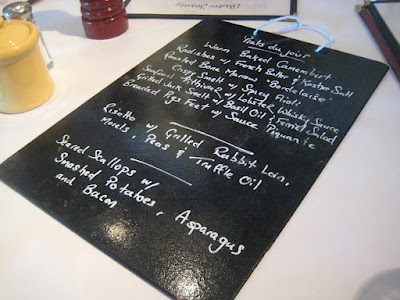 Bistro Jeanty
Plats du jour
Warm Baked Camembert
Radishes w/ French Butter & Kosher Salt
Roasted Bone Marrow "Bordelaise"
Crispy Smelt w/ Spicy Aioli
Seafood w/ Lobster Whisky Sauce
Grilled Jack Smelt w/ Basil Oil & Fennel Salad
Breaded Pigs Feet w/ Sauce Piquante
Risotto w/ Grilled Rabbit Loin,
Morels, Peas & Truffle Oil
Seared Scallops w/
Smashed Potatoes, Asparagus
and Bacon